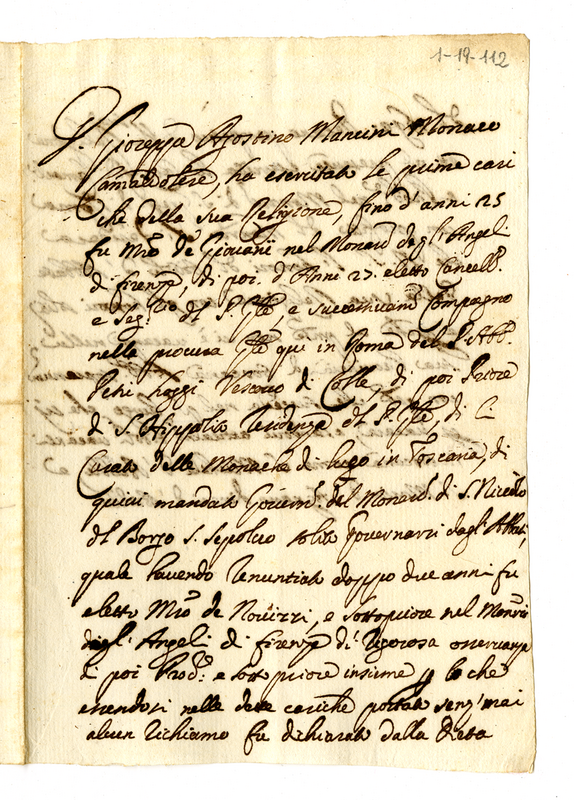 1-19-112
D. Gioseppe Agostino Mancini Monaco
Camaldolese, ha esercitato le prime cari
che della sua Religione, fino d'anni 25
fu Mro de Giovani nel Monaro degl'Angeli
di firenze, di poi d'Anni 27. eletto Cancelle.
e Segrio del P. Gnle, e successivamte Compagno
nella procura Gnle qui in Roma del P. Abb.
Petri hoggi Vescovo di Colle, di poi Priore
di S. Hippolito Residenza del P. Gnle, di
Curato delle Monache di lugo in Toscana, di
quivi mandato Governre del Monaro di S. Niccolo
del Borgo S. Sepolcro solito governarsi dagl'Abbati,
quale havendo renuntiato doppo due anni fu
eletto Mro de Novizzi, e sottopriore nel Monro
degl'Angeli di firenze di rigorosa osservanza
di poi e sotto priore insieme che
essendosi nelle dette cariche portato senz'mai
alcun richiamo fu dichiarato dalla Dieta